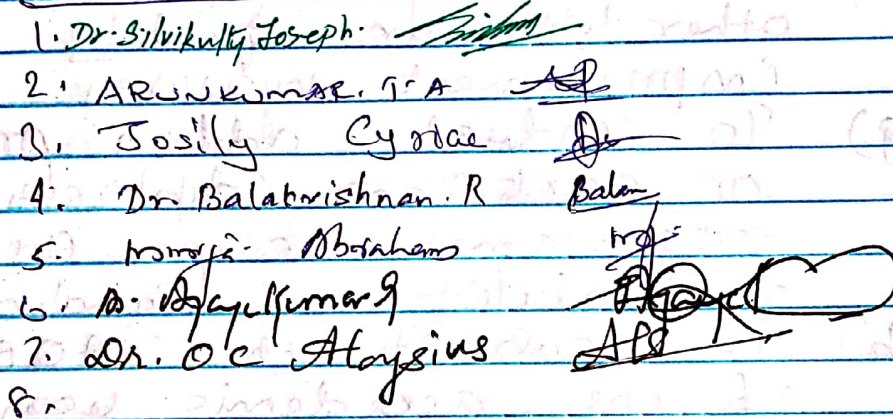 1. Dr. Silvikutty Joseph.
2. ARUNKUMAR. T A
3. Josily Cyriac
4. Dr. Balakrishnan. R Balan
5. Abraham
6. Ajayakumar
7. Dr. O C Aloysius
8.